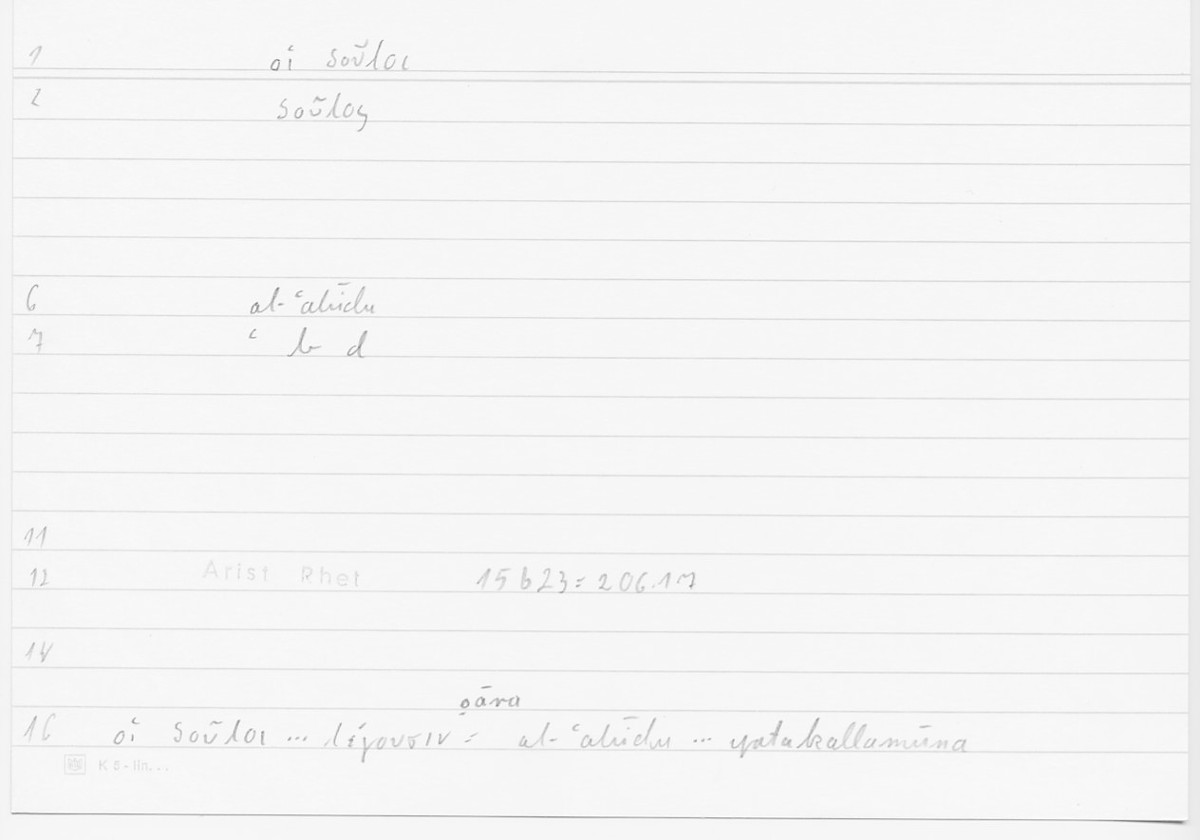 1 οἱ δοῦλοι
2 δοῦλος
6 al-ʿabīdu
7 ʿ b d
11
12 Arist Rhet 15 b23 = 206.17
14
ṣāra
16 οἱ δοῦλοι ... λέγουσιν = al-ʿabīdu ... yatakallamūna
K 5 - lin...